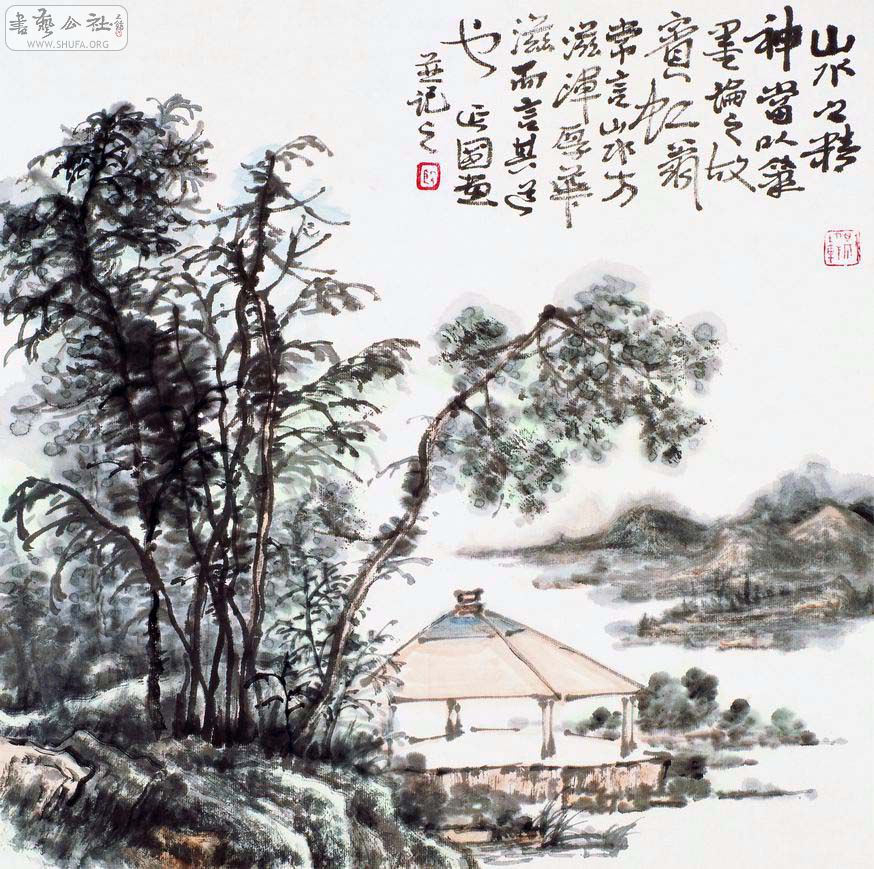 山水之精
神當以筆
墨論之故
賓虹翁
常言山水方
滋渾厚華
滋而言其道
也 正圖畫
並記之
書藝公社
WWW.SHUFA.ORG